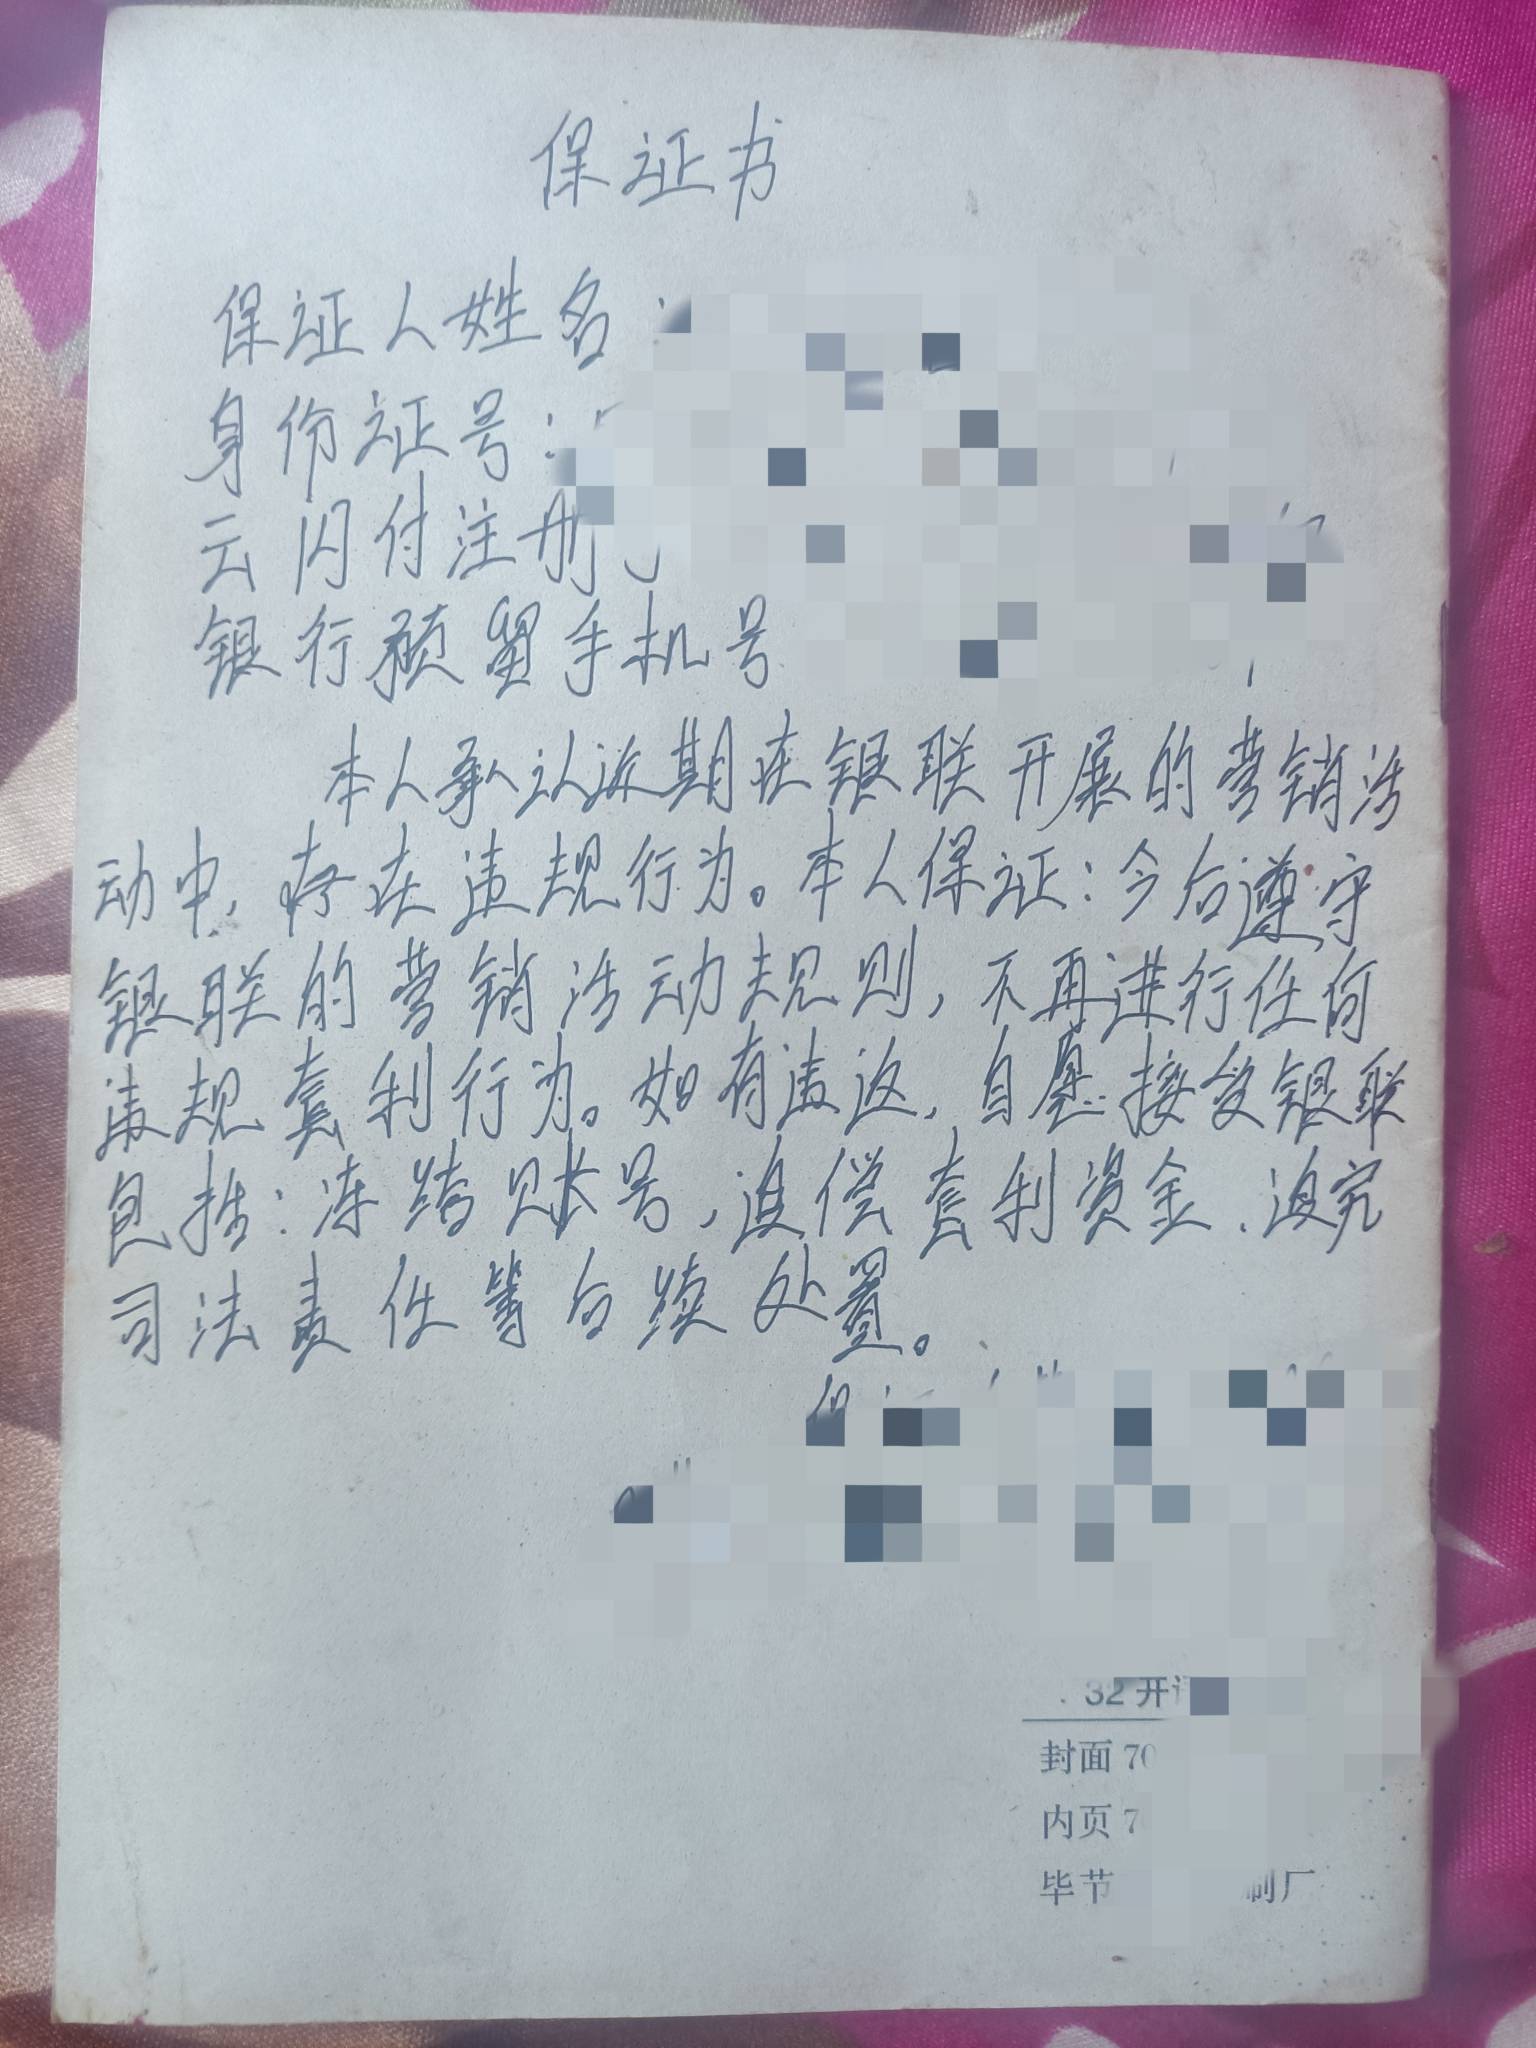 保证书
保证人姓名:
身份证号:
云闪付注册
银行预留手机号
本人承认近期在银联开展的营销活
动中,存在违规行为。本人保证:今后遵守
银联的营销活动规则,不再进行任何
违规套利行为。如有违返,自愿接受银联
包括:冻结账号,追偿套利资金、追究
司法责任等后续处置。
32开
封面 70
内页 7
毕节 制厂